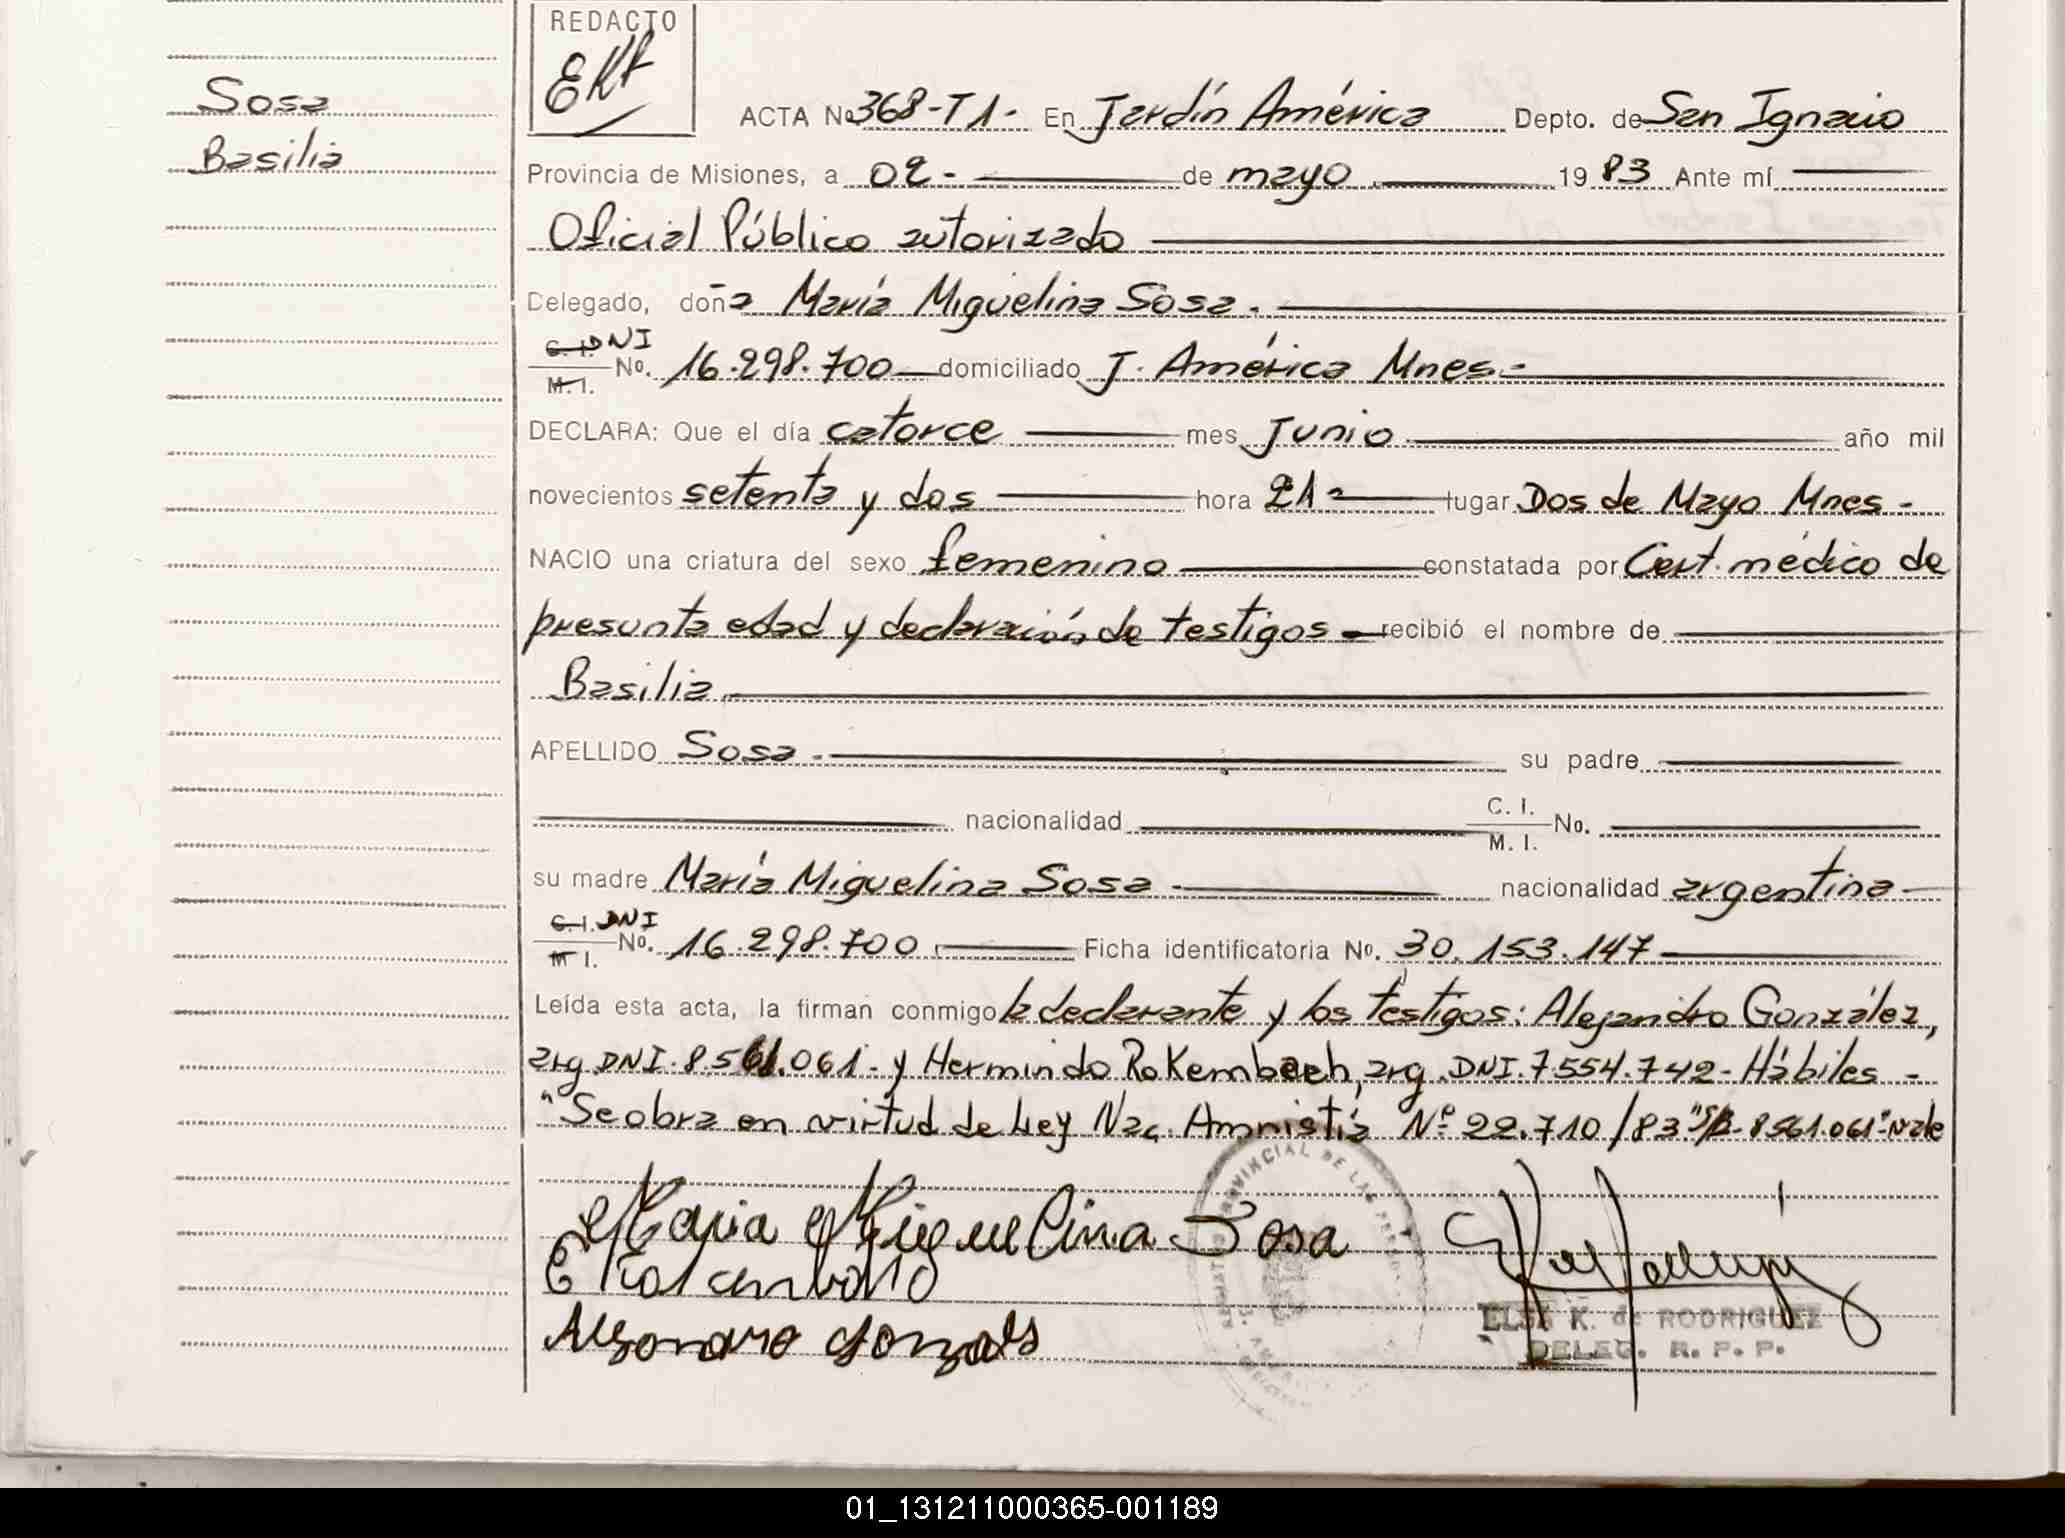 REDACTO
EKR
Sosa
Basilia
ACTA No 368-T1- En Jardín América Depto. de San Ignacio
Provincia de Misiones, a 02- de mayo 1983 Ante mí
Oficial Público autorizado
Delegado, doña María Miguelina Sosa.
C.I. DNI
M.I. No. 16.298.700 domiciliado J. América Mnes.-
DECLARA: Que el día catorce mes Junio año mil
novecientos setenta y dos hora 21- lugar Dos de Mayo Mnes-
NACIO una criatura del sexo femenino constatada por Cert. médico de
presunta edad y declaración de testigos - recibió el nombre de
Basilia
APELLIDO Sosa. su padre
nacionalidad C. I.
M. I. No.
su madre María Miguelina Sosa - nacionalidad argentina-
C.I. DNI
M I. No. 16.298.700 Ficha identificatoria No. 30.153.147
Leída esta acta, la firman conmigo la declarante y los testigos: Alejandro González,
arg DNI. 8.561.061- y Hermindo Rokembach, arg. DNI. 7554.742- Hábiles -
"Se obra en virtud de Ley Nac. Amnistía Nº 22.710/83" S/R- 8561.061" vale
Maria Miguelina Sosa
Alejandro Gonzales
ELSA K. de RODRIGUEZ
DELEG. R. P. P.
PROVINCIAL DE LAS PERSONAS
01_131211000365-001189